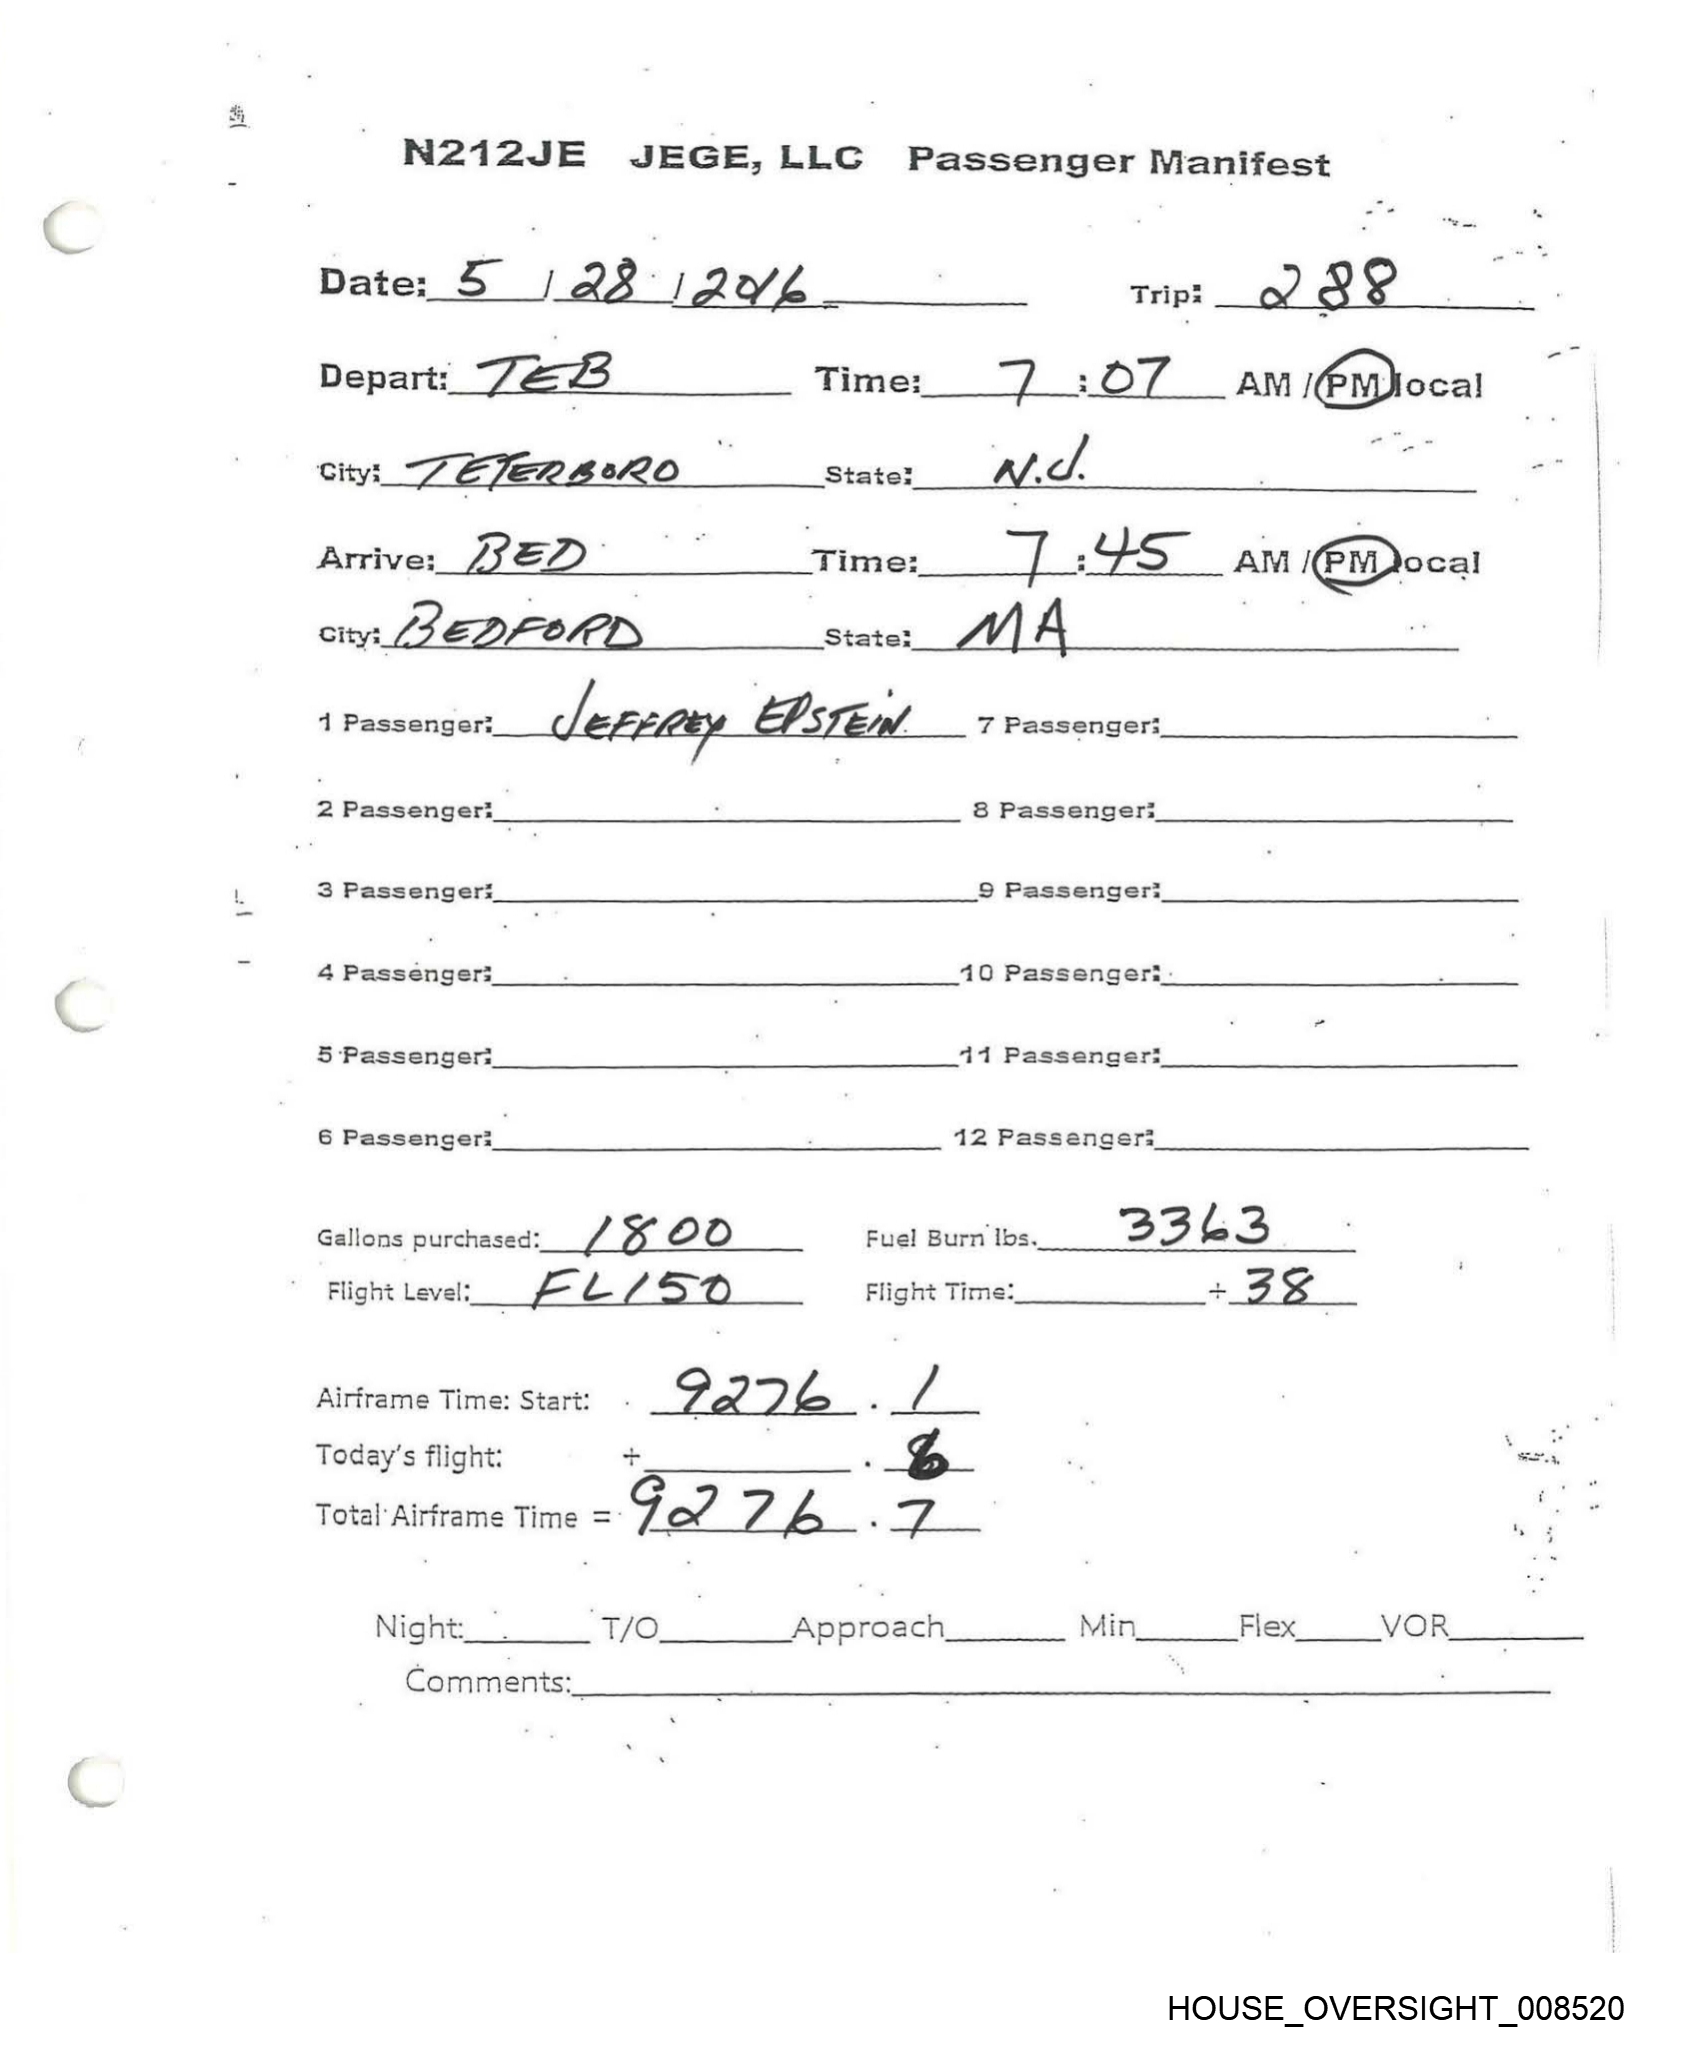 N212JE JEGE, LLC Passenger Manifest
Date: 5 / 28 / 2016 Trip: 288
Depart: TEB Time: 7 : 07 AM / PM local
City: TETERBORO State: N.J.
Arrive: BED Time: 7 : 45 AM / PM local
City: BEDFORD State: MA
1 Passenger: JEFFREY EPSTEIN 7 Passenger:
2 Passenger: 8 Passenger:
3 Passenger: 9 Passenger:
4 Passenger: 10 Passenger:
5 Passenger: 11 Passenger:
6 Passenger: 12 Passenger:
Gallons purchased: 1800 Fuel Burn lbs. 3363
Flight Level: FL150 Flight Time: + 38
Airframe Time: Start: 9276 . 1
Today's flight: + . 6
Total Airframe Time = 9276 . 7
Night: T/O Approach Min Flex VOR
Comments:
HOUSE_OVERSIGHT_008520